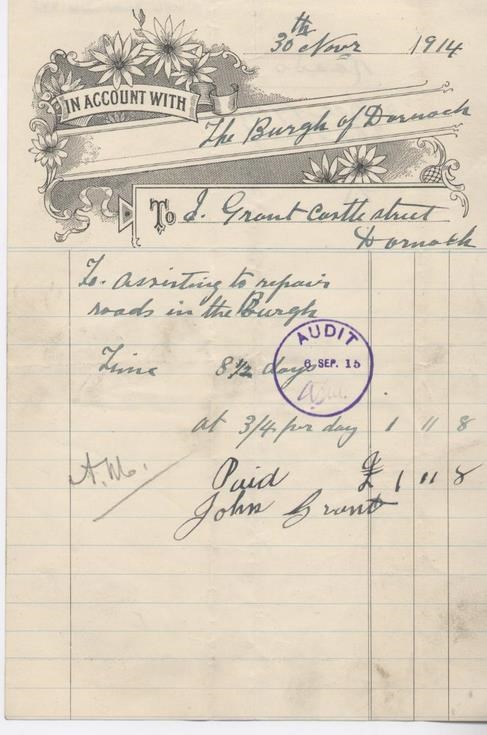 30th Novr 1914
IN ACCOUNT WITH
The Burgh of Dornoch
To J. Grant Castle street
Dornoch
To. assisting to repair
roads in the Burgh
AUDIT
6 SEP. 15
Time 8 1/2 days
at 3/4 per day 1 11 8
A.M.
Paid £ 1 11 8
John Grant